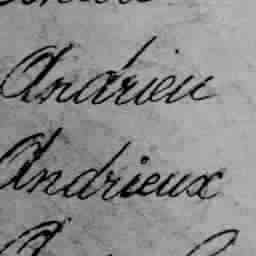 Andrieu
Andrieux